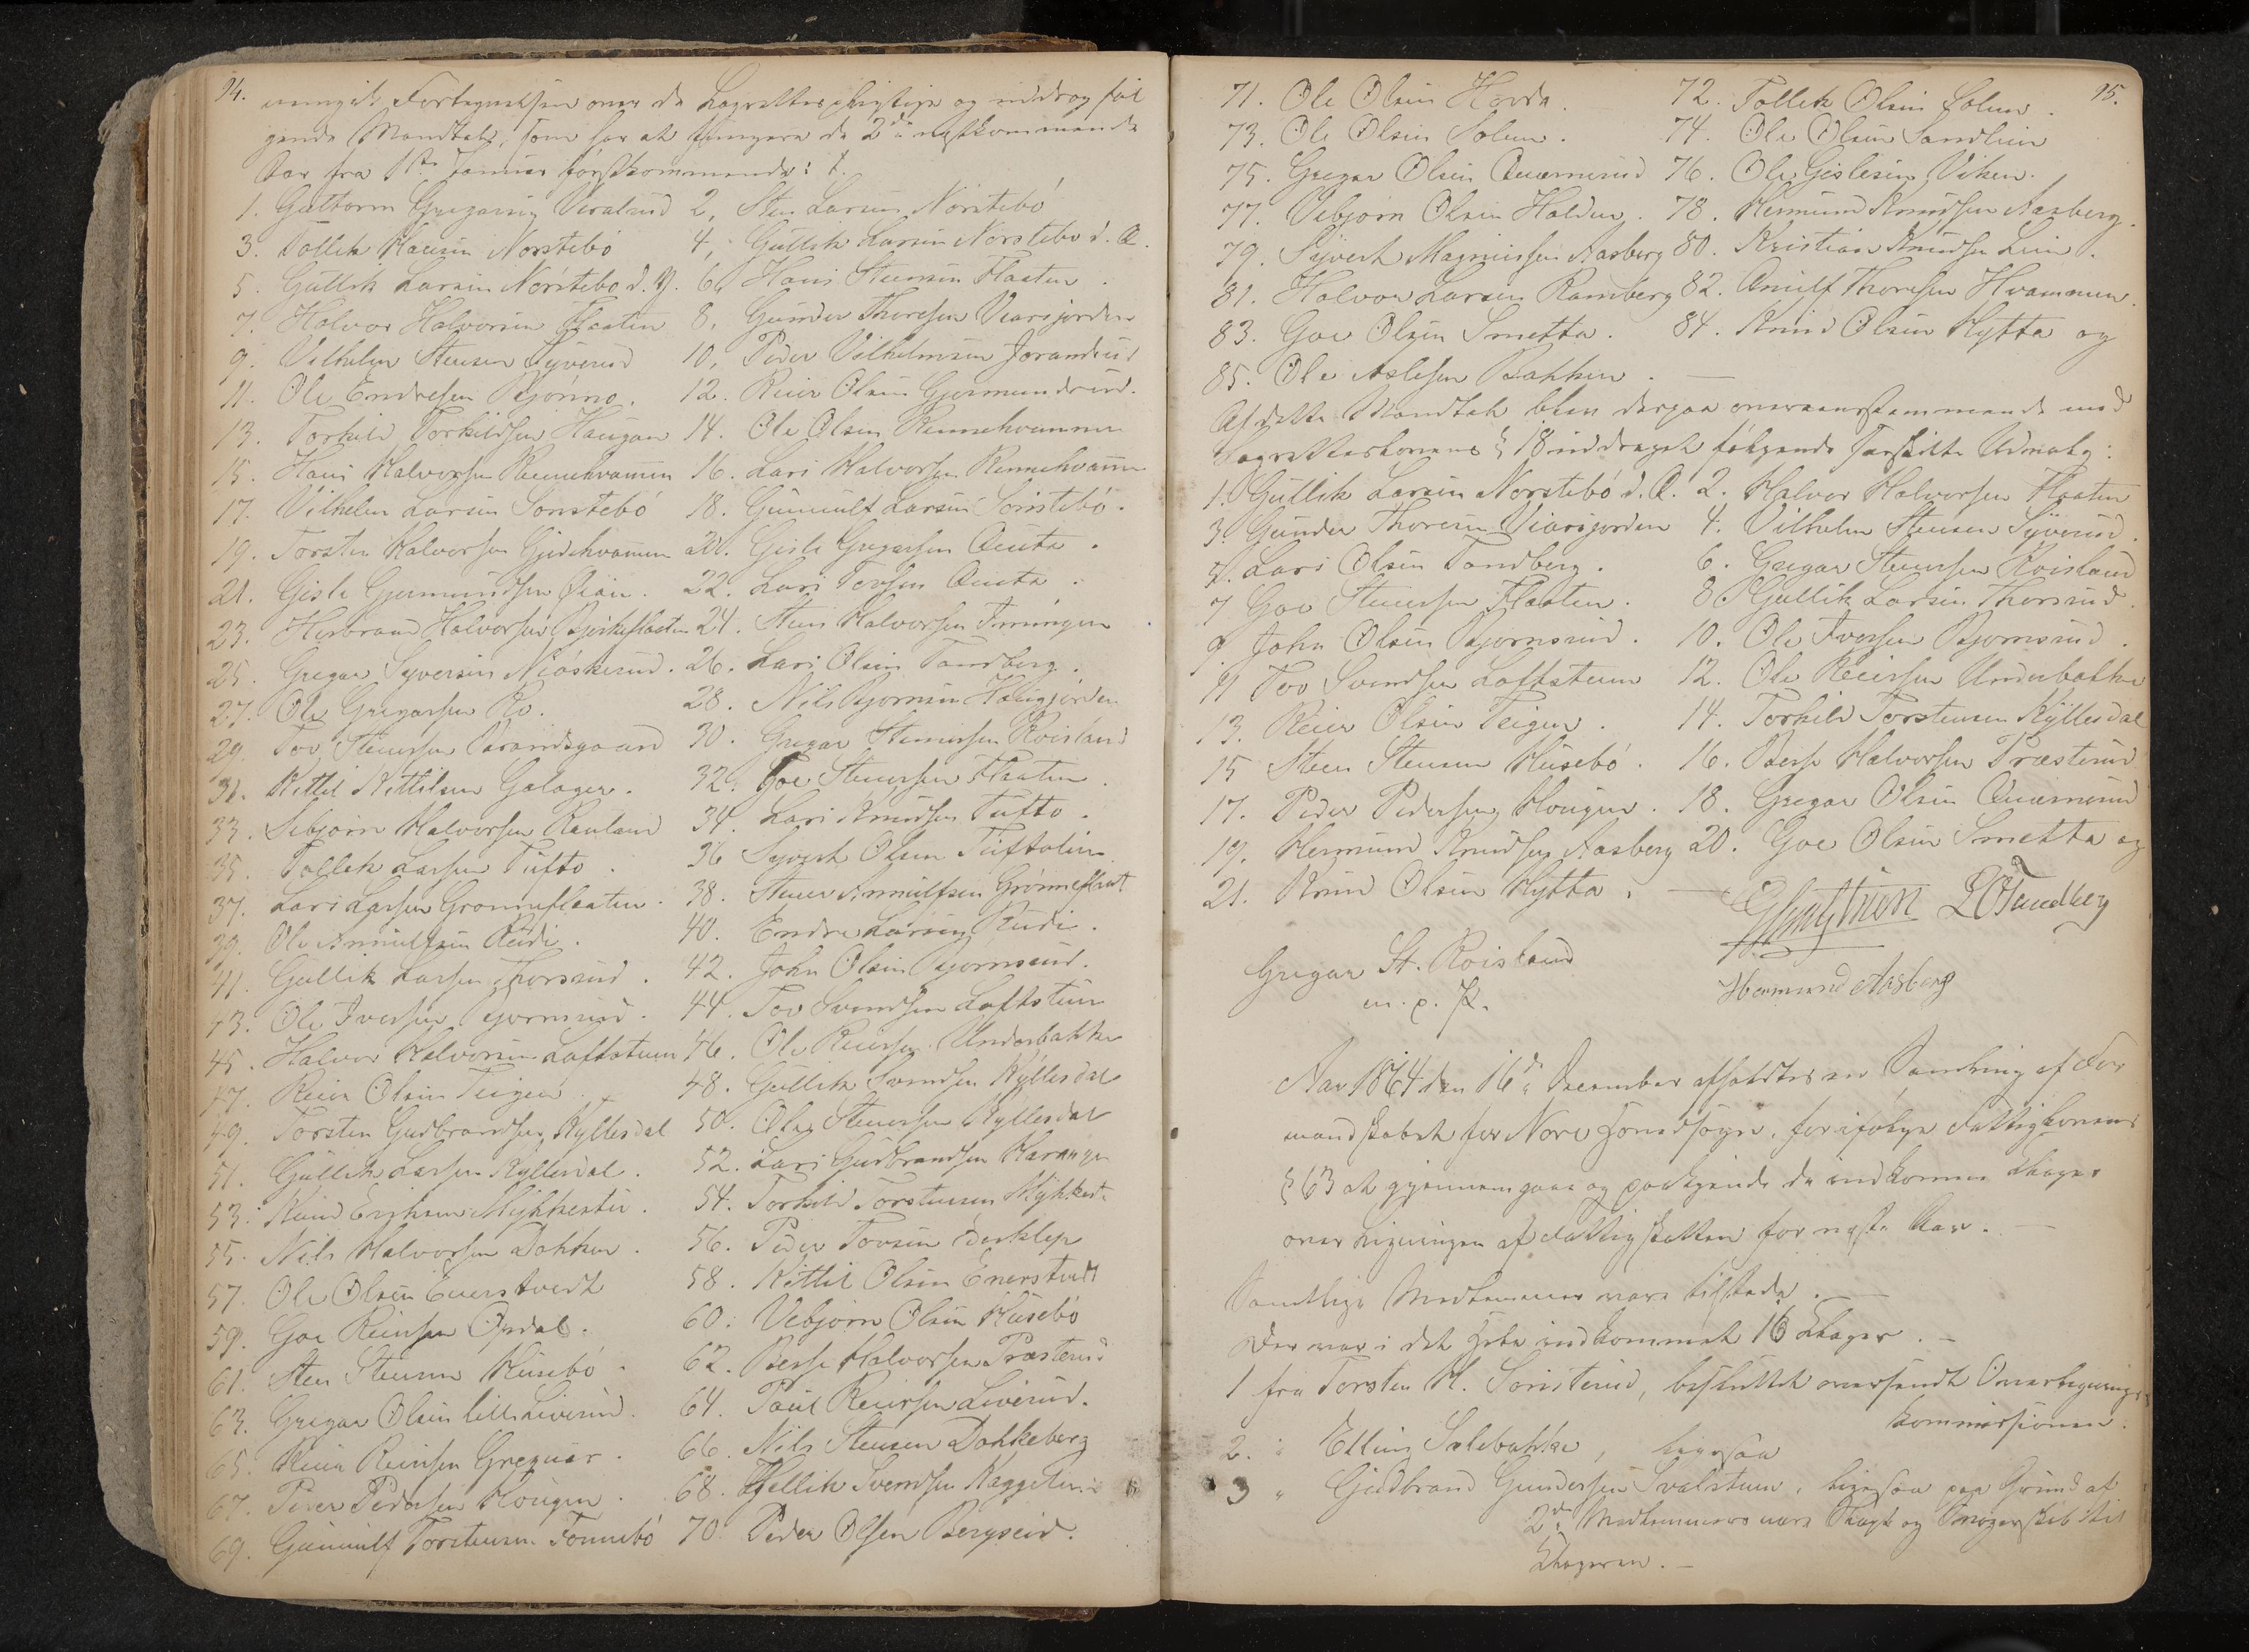 94.
Fortegnelsen over de Lagrettespligtige og inddrog føl
gende Mandtal, som har at fungere de 2de næstkommende
Aar fra 1ste Januar førstkommende:
1. Guttorm Gregarsen Viralrud 2, Sten Larsen Nørstebø
3. Tollek Hansen Nørstebø 4, Gullik Larsen Nørstebø d. Æ.
5. Gullik Larsen Nørstebø d. Y. 6, Hans Steensen Flaaten.
7. Halvor Halvorsen Flaaten 8, Gunder Thoresen Viarsjorden
9. Vilhelm Stensen Syverud 10, Peder Vilhelmsen Jorandrud
11. Ole Endresen Bjønno. 12. Reier Olsen Gjermundrud.
13. Torkild Torkildsen Haugan 14. Ole Olsen Rennehvammen
15. Hans Halvorsen Rennehvammen 16. Lars Halvorsen Rennehvammen
17. Vilhelm Larsen Sønstebø 18. Gunnulf Larsen Sønstebø.
19. Torsten Halvorsen Gjedehvammen 20. Gisle Gregarsen Qvita.
21. Gisle Gjermundsen Øian. 22. Lars Torsen Qvita.
23. Herbrand Halvorsen Bjerkeflaaten 24. Sten Halvorsen Frøningen
25. Gregar Syversen Miøskerud. 26. Lars Olsen Tandberg.
27. Ole Gregarsen Ro. 28. Nils Bjørnsen Haugjorden
29. Tov Steensen Brandsgaard 30. Gregar Steensen Roisland
31. Kittil Kittilsen Galager. 32. Goe Steensen Flaaten.
33. Sebjørn Halvorsen Rauland 34. Lars Knudsen Tufto.
35. Tollek Larsen Tufto. 36 Syvert Olsen Tuftolin
37. Lars Larsen Grønneflaaten. 38. Steen Arnulfsen Grønneflaat
39. Ole Arnulfsen Rudi. 40. Endre Larsen Rudi.
41. Gullik Larsen Thorsrud. 42. John Olsen Bjørnsrud.
43. Ole Iversen Bjørnsrud. 44. Tov Svendsen Loftstuen
45. Halvor Halvorsen Loftstuen 46. Ole Reiersen Underbakke
47. Reier Olsen Teigen. 48. Gullik Svendsen Kyllesdal
49. Torsten Gudbrandsen Kyllesdal 50. Ole Steensen Kyllesdal
51. Gullik Larsen Kyllesdal. 52. Lars Gudbrandsen Haranger
53. Knud Eriksen Mykkestu. 54. Torkild Torstensen Mykkest.
55. Nils Halvorsen Dokken. 56. Peder Tovsen Eserklep
57. Ole Olsen Enerstvedt 58. Kittil Olsen Enerstvedt
59. Goe Reiersen Opdal. 60. Vebjørn Olsen Husebø
61. Sten Steensen Husebø. 62. Berse Halvorsen Præsterud
63. Gregar Olsen lille Liverud. 64. Paul Reiersen Liverud.
65. Reier Reiersen Greguar. 66. Nils Stensen Dokkeberg
67. Peder Pedersen Hougen. 68. Tjellik Svendsen Kaggeten
69. Gunnulf Torstensen Tonnebø 70 Peder Olsen Bergseid.
95.
71. Ole Olsen Hovde. 72. Tollek Olsen Solum.
73. Ole Olsen Solum. 74. Ole Olsen Sandlien
75. Gregar Olsen Qværnerud 76. Ole Gislesen Viken.
77. Vebjørn Olsen Halden. 78. Hermund Knudsen Aasberg.
79. Syvert Magnussen Aasberg 80. Kristian Knudsen Lien.
81. Halvor Larsen Ramberg 82. Arnulf Thoresen Hvammen.
83. Goe Olsen Smetta. 84. Knud Olsen Hytta og
85. Ole Aslesen Bakken.
Af dette Mandtal blev derpaa overeensstemmende med
Lagrettelovens § 18 inddraget følgende særskilte Udvalg:
1. Gullik Larsen Nørstebø d. Æ. 2. Halvor Halvorsen Flaaten
3. Gunder Thoresen Viarsjorden 4. Vilhelm Stensen Syverud.
5. Lars Olsen Tandberg. 6. Gregar Steensen Roisland
7 Goe Steensen Flaaten. 8 Gullik Larsen Thorsrud.
9. John Olsen Bjørnsrud. 10. Ole Iversen Bjørnsrud.
11 Tov Svendsen Loftstuen 12. Ole Reiersen Underbakke
13. Reier Olsen Teigen. 14. Torkild Torstensen Kyllesdal
15 Steen Steensen Husebø. 16. Berse Halvorsen Præsterud
17. Peder Pedersen Hougen. 18. Gregar Olsen Qværnerud
19. Hermund Knudsen Aasberg 20. Goe Olsen Smetta og
21. Knud Olsen Hytta.
L O Tandberg
Gregar St. Roisland
m. p. P.
Hermund Aasberg
Aar 1864 den 16de December afholdtes en Samling af For
mandskabet for Nore Sognesogn, for ifølge Fattiglovens
§ 63 at gjennemgaae og paakjende de indkomne Klager
over Ligningen af Fattigskatten for næste Aar.
Samtlige Medlemmer vare tilstede.
Der var i det Hele indkommet 16 Klager.
1 fra Torsten H. Sønsterud, besluttet oversendt Overligningss
kommissionen.
2. " Elling Solebakke, ligesaa
3 " Gudbrand Gundersen Svalstuen, ligesaa paa Grund af
2de Medlemmers nære Slægt og Svogerskab til
Klageren.